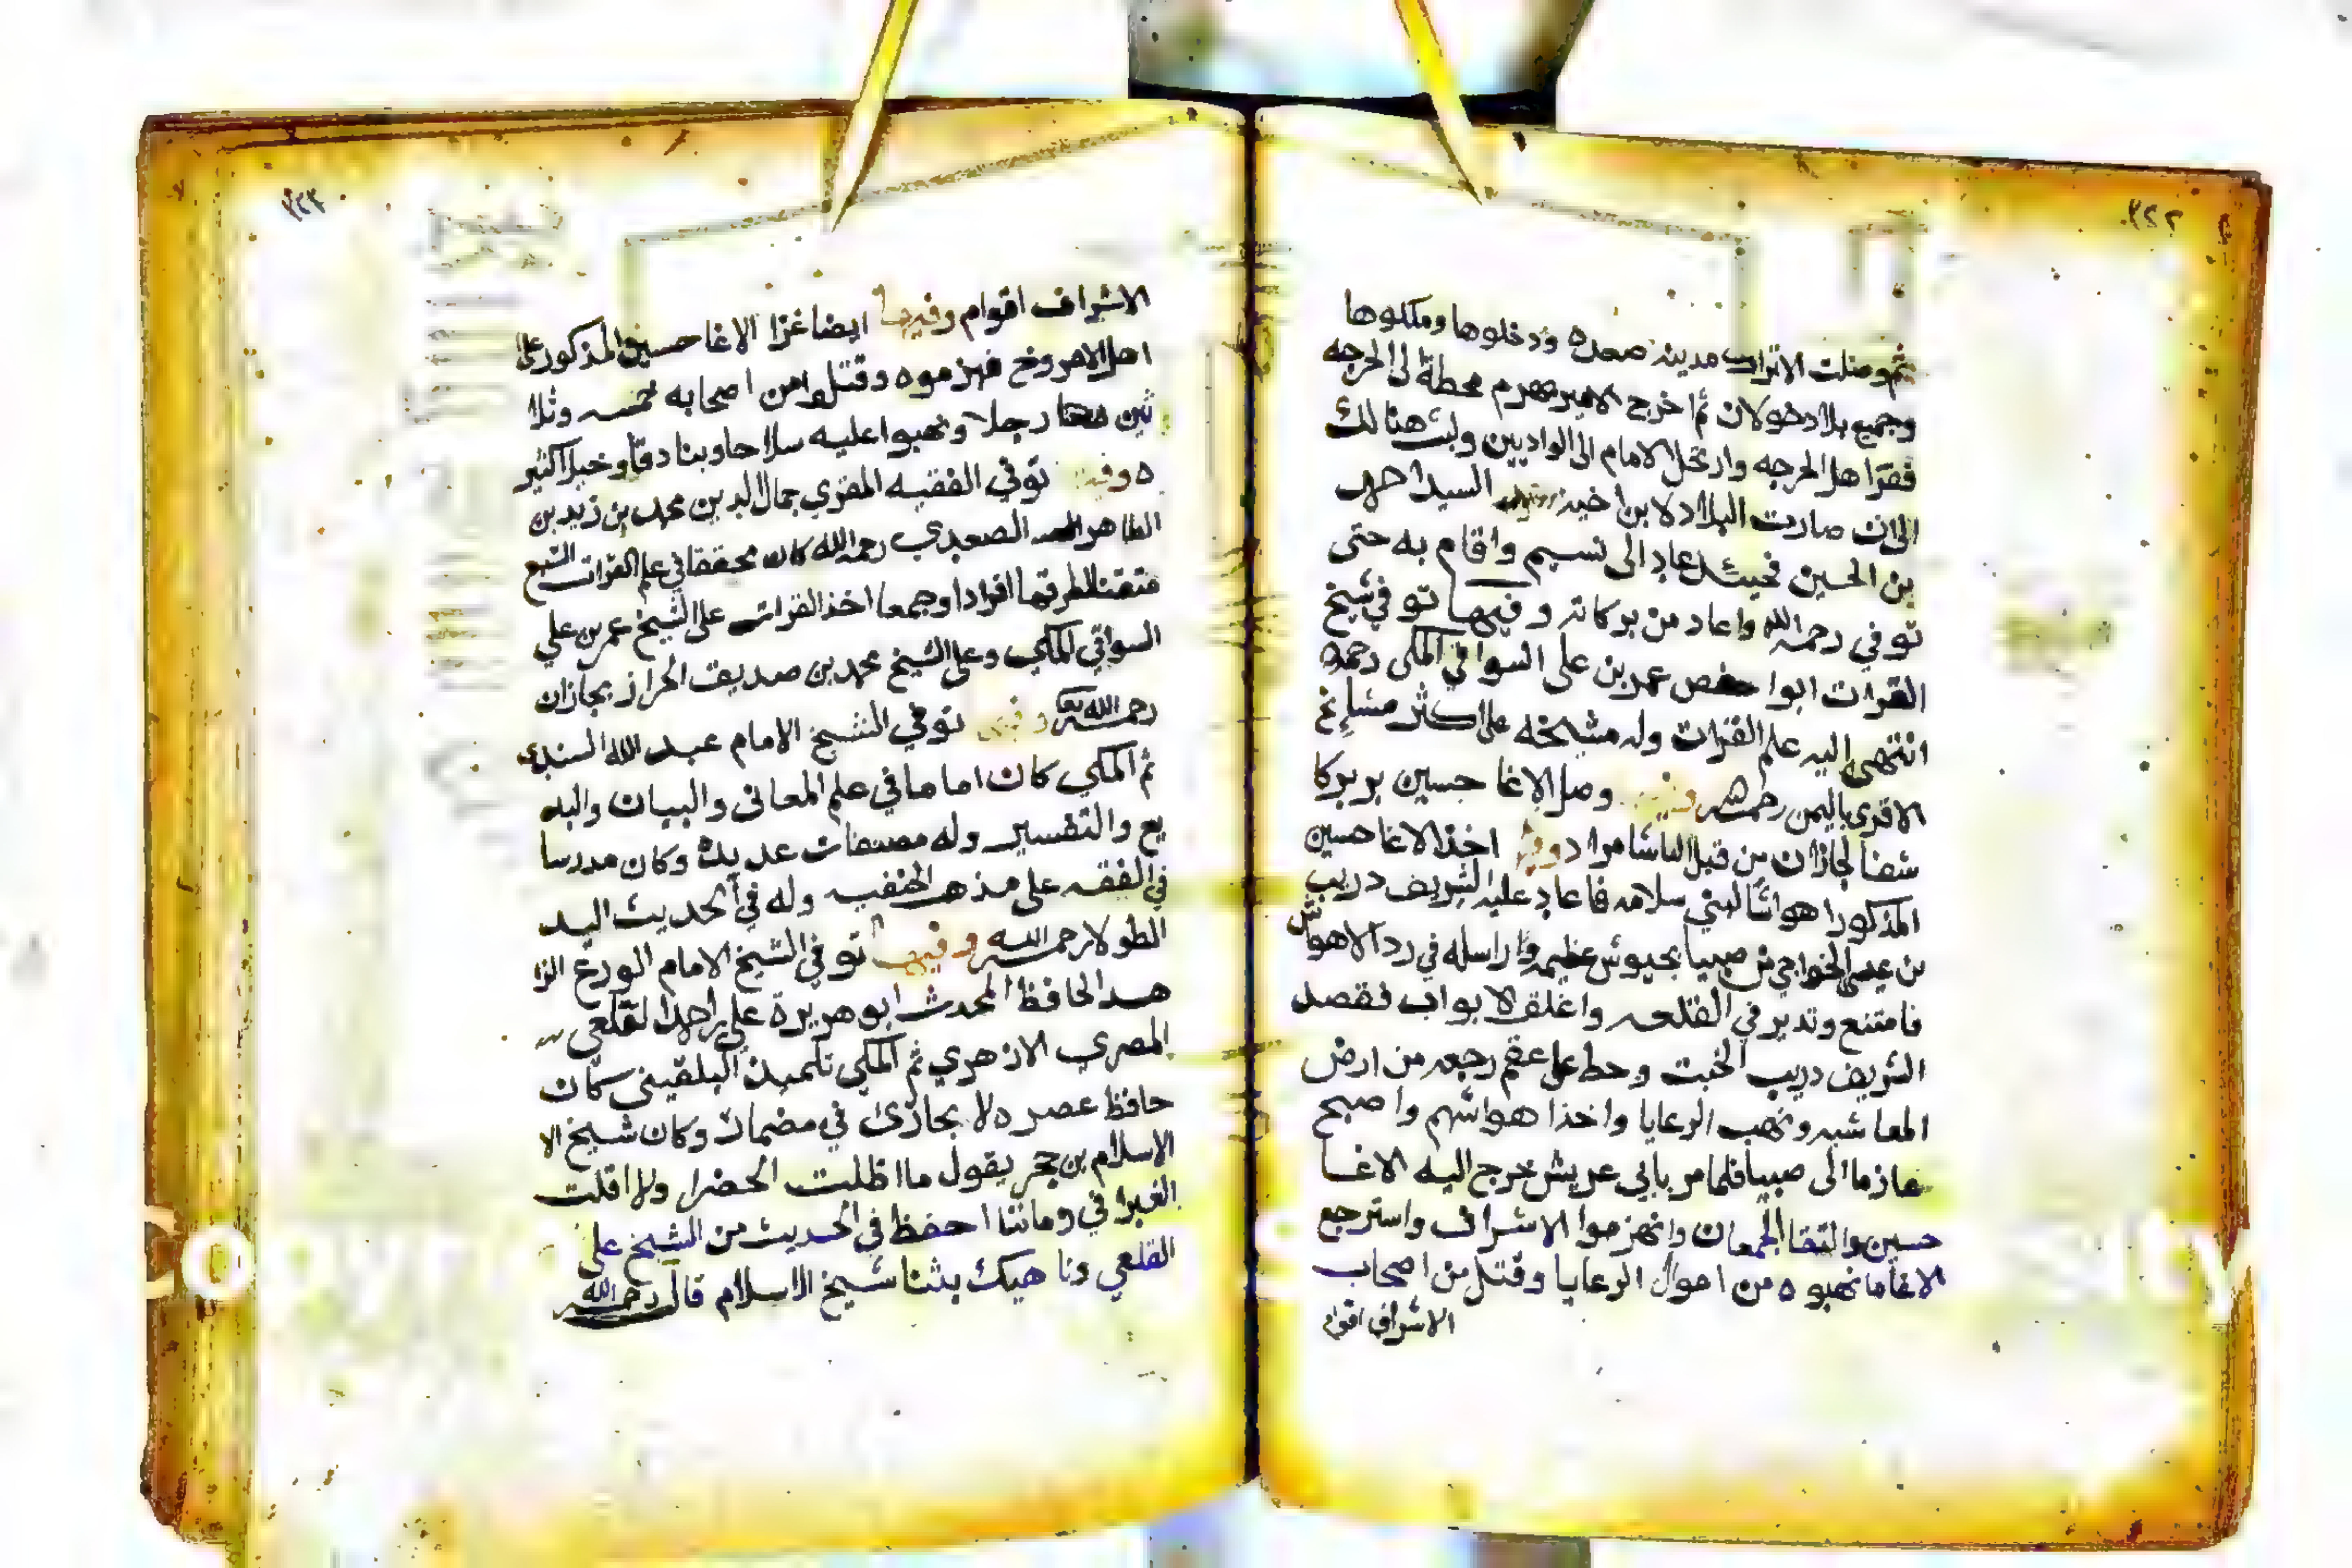 ٢٢٢
ثم وصلت الاتراك مدينة صعده ودخلوها وملكوها
وجميع بلاد خولان ثم اخرج الامير محطة الى الحرجه
ففرا هل الحرجه وارتحل الامام الى الواديين ولبث هنالك
الى ان صارت البلاد لابن اخيه السيد احمد
بن الحسين فحينئذ عاد الى نسيم واقام به حتى
توفي رحمه الله واعاد من بركاته وفيها توفي شيخ
القرات ابوا حفص عمر بن على السواقي المكى رحمه
انتهى اليه علم القرات وله مشيخه على اكثر مشايخ
الاقرى باليمن رحمهم وفيها وصل الاغا حسين بربركا
شفا لجازان من قبل الباشا مراد وفيها اخذ الاغا حسين
المذكورا هواشا لبني سلامه فاعاد عليه الشريف دريب
بن عيسى الخواجي من صبيا بجيوش عظيمه وراسله في رد الاهواش
فامتنع وتدبر في القلعه واغلق الابواب فقصد
الشريف دريب الخبت وحط على عقم رجعه من ارض
المعاشبه ونهب الرعايا واخذا هواشهم واصبح
عازما الى صبيا فلما مر بابي عريش خرج اليه الاغا
حسين والتقا الجمعان وانهزموا الاشراف واسترجع
الاغا ما نهبوه من احوال الرعايا وقتل من اصحاب
الاشراف اقوام
٢٢٣
الاشراف اقوام وفيها ايضا غزا الاغا حسين المذكور على
اهل الامروخ فهزموه وقتلوا من اصحابه خمسه وثلا
ثين رجلا ونهبوا عليه سلاحا وبنادقا وخيلا كثير
ه وفيها توفي الفقيه المقري جمال الدين محمد بن زيد بن
الطاهر الصعيدي رحمه الله كان محققا في علم القرات السبع
متقنا لطرقها افرادا وجمعا اخذ القرات على الشيخ عمر بن علي
السواقي المكي وعلى الشيخ محمد بن صديق الحراز بجازان
رحمه الله وفيها توفي الشيخ الامام عبد الله السندي
ثم المكي كان اماما في علم المعانى والبيان والبد
يع والتفسير وله مصنفات عديدة وكان مدرسا
في الفقه على مذهب الحنفيه وله في الحديث اليد
الطولا رحمه الله وفيها توفي الشيخ الامام الورع الزا
هد الحافظ المحدث ابو هريرة علي بن احمد القلعي
المصري الازهري ثم المكي تلميذ البلقيني كان
حافظ عصره لا يجازى في مضمات وكان شيخ الا
الاسلام بن حجر يقول ما اظلت الخضرا ولا اقلت
الغبرا في وماننا احفظ في الحديث من الشيخ على
القلعي ونا هيك بثنا شيخ الاسلام قال رحمه الله